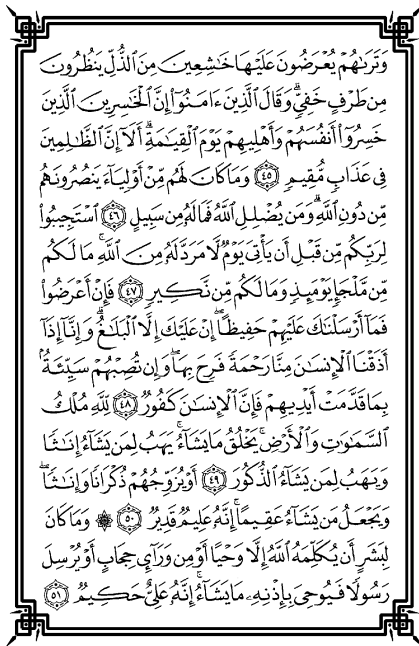 وَتَرَىٰهُمْ يُعْرَضُونَ عَلَيْهَا خَٰشِعِينَ مِنَ ٱلذُّلِّ يَنظُرُونَ
مِن طَرْفٍ خَفِيٍّۗ وَقَالَ ٱلَّذِينَ ءَامَنُوٓا۟ إِنَّ ٱلْخَٰسِرِينَ ٱلَّذِينَ
خَسِرُوٓا۟ أَنفُسَهُمْ وَأَهْلِيهِمْ يَوْمَ ٱلْقِيَٰمَةِۗ أَلَآ إِنَّ ٱلظَّٰلِمِينَ
فِى عَذَابٍ مُّقِيمٍ ٤٥ وَمَا كَانَ لَهُم مِّنْ أَوْلِيَآءَ يَنصُرُونَهُم
مِّن دُونِ ٱللَّهِۗ وَمَن يُضْلِلِ ٱللَّهُ فَمَا لَهُۥ مِن سَبِيلٍ ٤٦ ٱسْتَجِيبُوا۟
لِرَبِّكُم مِّن قَبْلِ أَن يَأْتِىَ يَوْمٌ لَّا مَرَدَّ لَهُۥ مِنَ ٱللَّهِۚ مَا لَكُم
مِّن مَّلْجَإٍ يَوْمَئِذٍ وَمَا لَكُم مِّن نَّكِيرٍ ٤٧ فَإِنْ أَعْرَضُوا۟
فَمَآ أَرْسَلْنَٰكَ عَلَيْهِمْ حَفِيظًاۖ إِنْ عَلَيْكَ إِلَّا ٱلْبَلَٰغُۗ وَإِنَّآ إِذَآ
أَذَقْنَا ٱلْإِنسَٰنَ مِنَّا رَحْمَةً فَرِحَ بِهَاۖ وَإِن تُصِبْهُمْ سَيِّئَةٌۢ
بِمَا قَدَّمَتْ أَيْدِيهِمْ فَإِنَّ ٱلْإِنسَٰنَ كَفُورٌ ٤٨ لِّلَّهِ مُلْكُ
ٱلسَّمَٰوَٰتِ وَٱلْأَرْضِۚ يَخْلُقُ مَا يَشَآءُۚ يَهَبُ لِمَن يَشَآءُ إِنَٰثًا
وَيَهَبُ لِمَن يَشَآءُ ٱلذُّكُورَ ٤٩ أَوْ يُزَوِّجُهُمْ ذُكْرَانًا وَإِنَٰثًاۖ
وَيَجْعَلُ مَن يَشَآءُ عَقِيمًاۚ إِنَّهُۥ عَلِيمٌ قَدِيرٌ ٥٠ ۞ وَمَا كَانَ
لِبَشَرٍ أَن يُكَلِّمَهُ ٱللَّهُ إِلَّا وَحْيًا أَوْ مِن وَرَآئِ حِجَابٍ أَوْ يُرْسِلَ
رَسُولًا فَيُوحِىَ بِإِذْنِهِۦ مَا يَشَآءُۚ إِنَّهُۥ عَلِىٌّ حَكِيمٌ ٥١